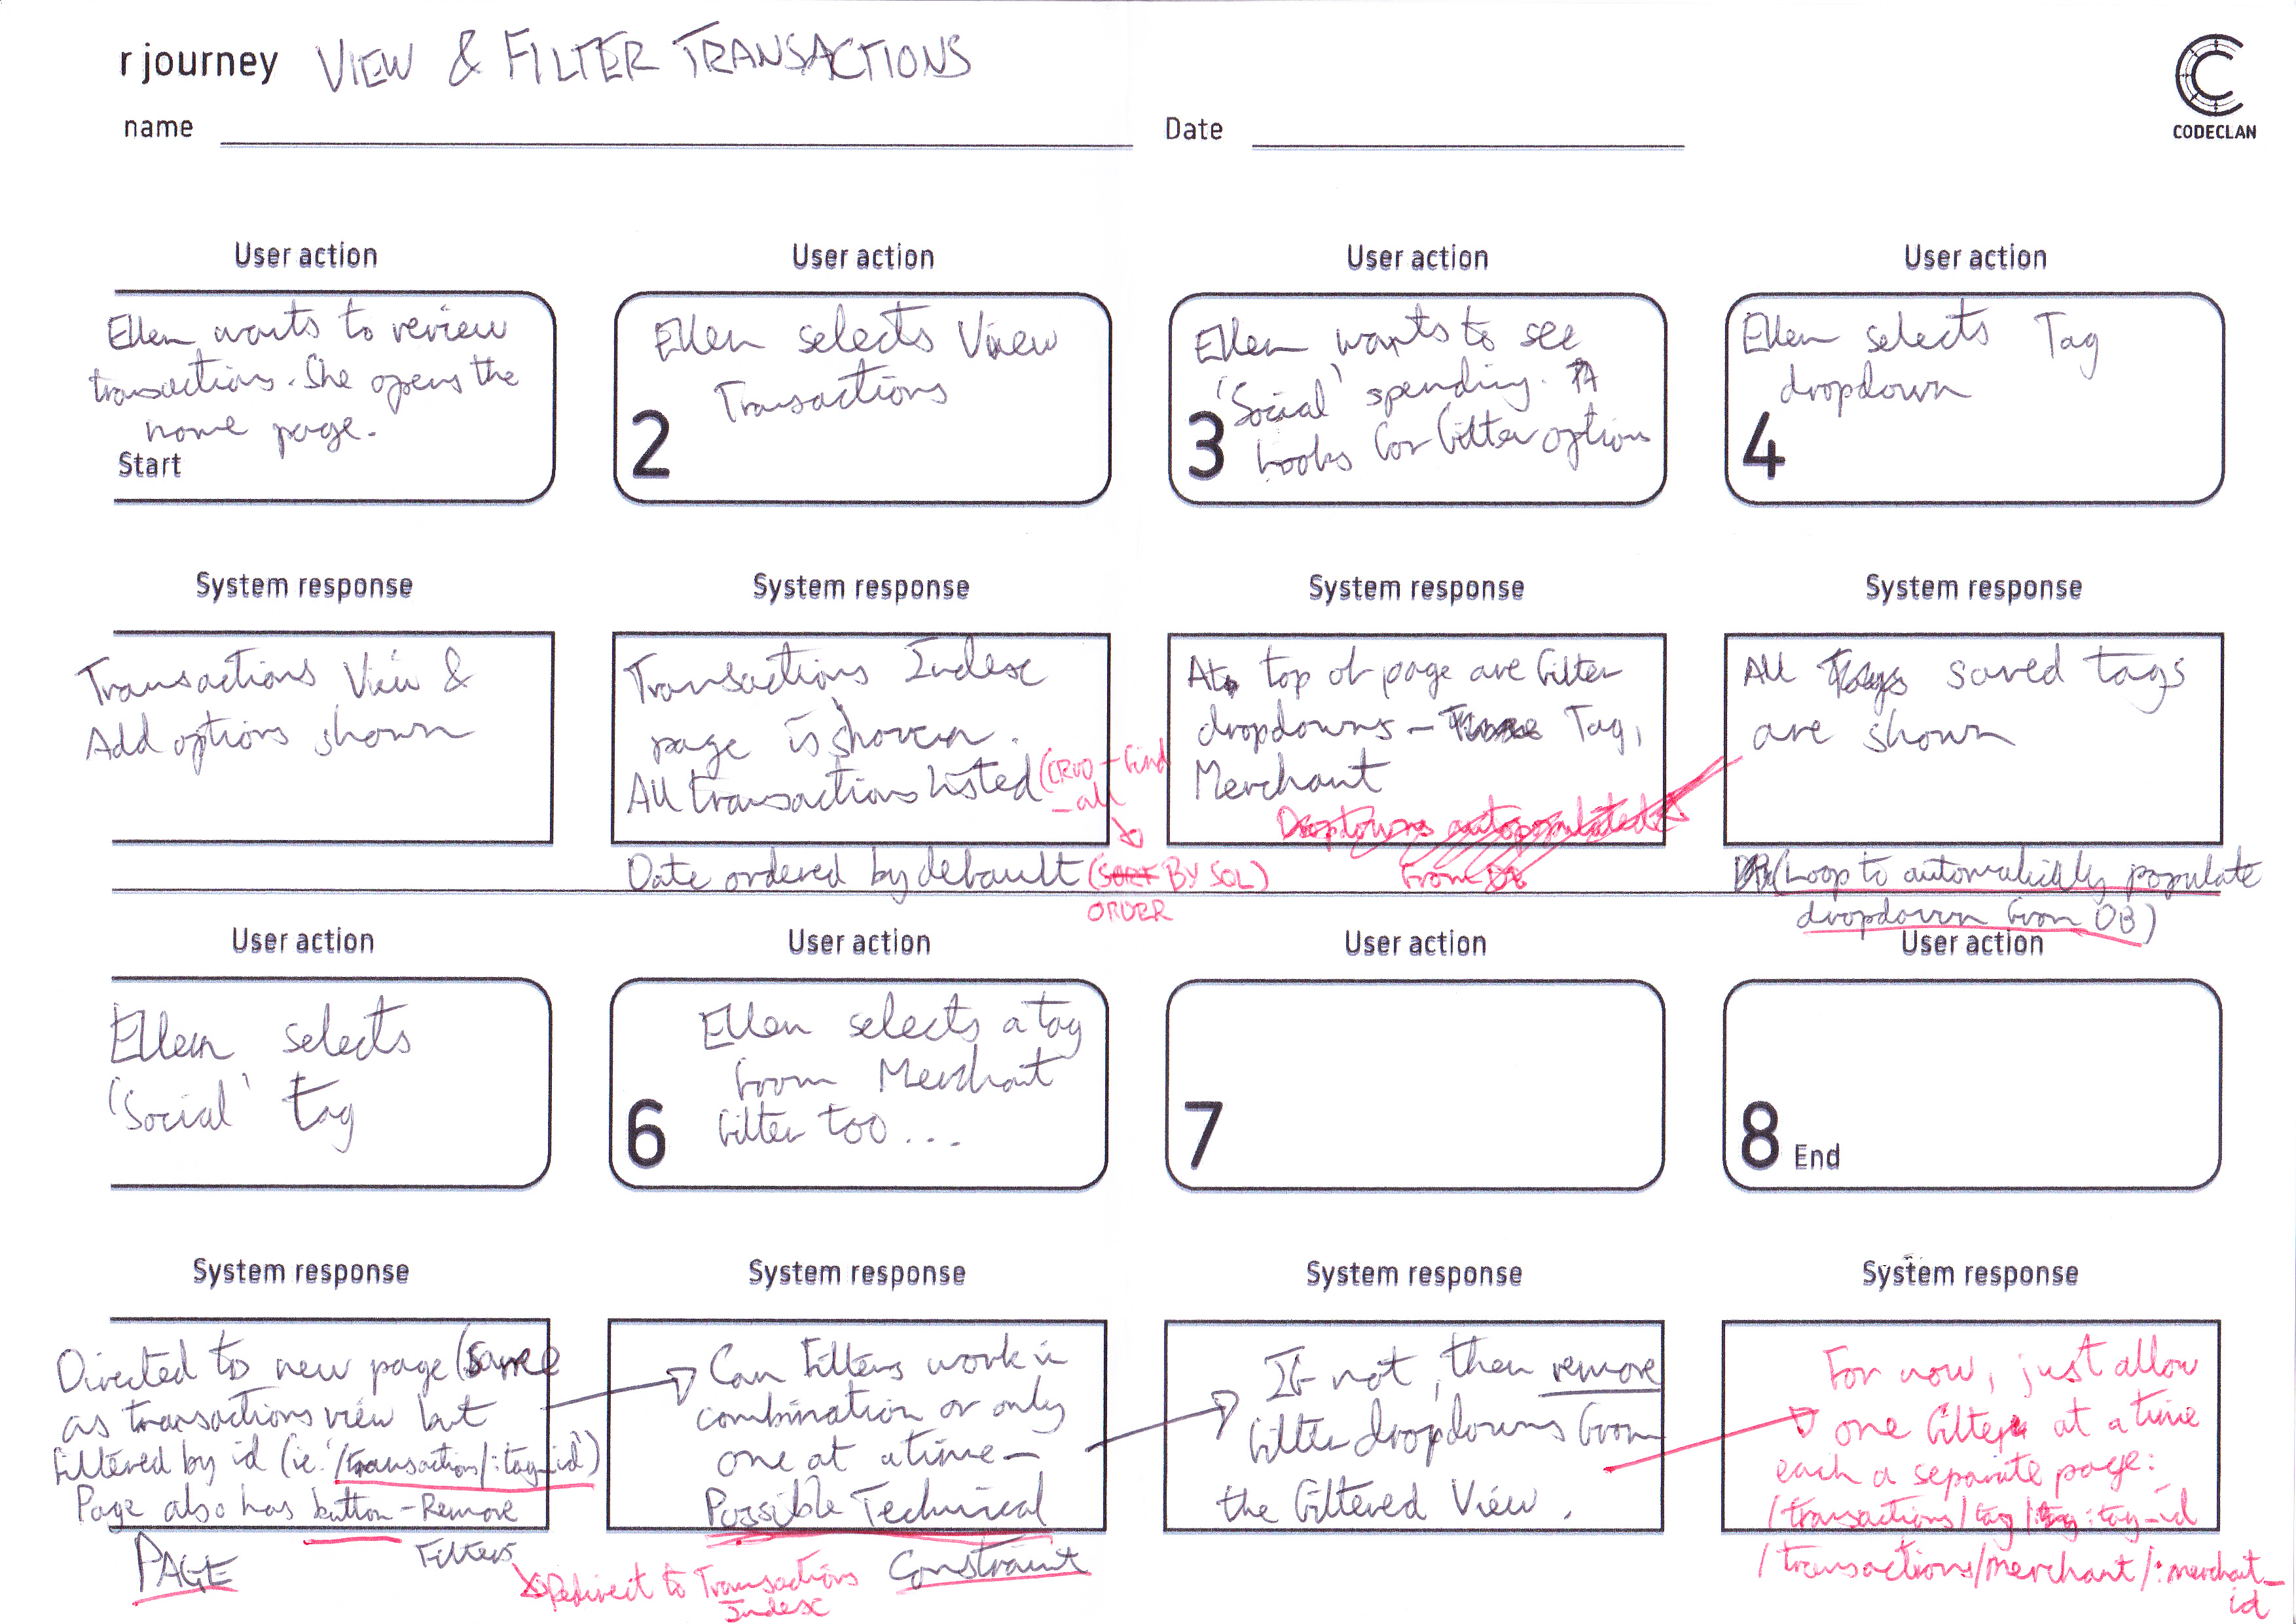 r journey VIEW & FILTER TRANSACTIONS
name Date
CODECLAN
User action
Ellen wants to review
transactions. She opens the
home page.
Start
User action
Ellen selects View
Transactions
2
User action
Ellen wants to see
'Social' spending.
Looks for filter option
3
User action
Ellen selects Tag
dropdown
4
System response
Transactions View &
Add options shown
System response
Transactions Index
page is shown.
All transactions listed (CRUD - find
_all
Date ordered by default (SORT BY SQL)
ORDER
System response
At top of page are filter
dropdowns - Tag,
Merchant
Dropdowns autopopulated
from DB
System response
All Tags saved tags
are shown
(Loop to automatically populate
dropdown from DB)
User action
Ellen selects
'Social' tag
User action
Ellen selects a tag
from Merchant
filter too ...
6
User action
7
User action
8 End
System response
Directed to new page (same
as transactions view but
filtered by id (ie. '/transactions/:tag_id')
Page also has button - Remove
Filters
PAGE
Redirect to Transactions
Index
System response
Can Filters work in
combination or only
one at a time -
Possible Technical
Constraint
System response
If not, then remove
filter dropdowns from
the filtered View.
System response
For now, just allow
one filter at a time
each a separate page:
/transactions/tag/:tag_id
/transactions/merchant/:merchant_
id